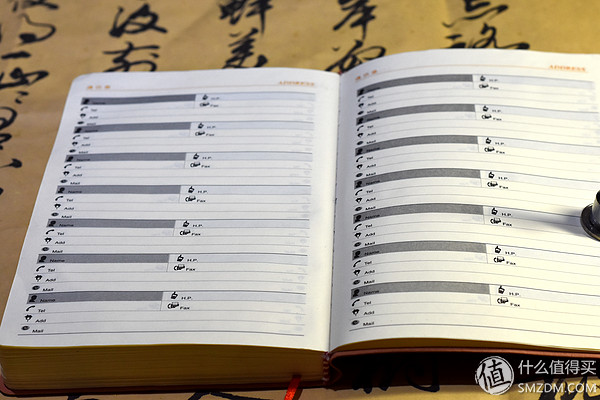 ADDRESS
Name H.P.
Tel Fax
Add
Mail
Name H.P.
Tel Fax
Add
Mail
Name H.P.
Tel Fax
Add
Mail
Name H.P.
Tel Fax
Add
Mail
Name H.P.
Tel Fax
Add
Mail
Name H.P.
Tel Fax
Add
Mail
Name H.P.
Tel Fax
Add
Mail
ADDRESS
Name H.P.
Tel Fax
Add
Mail
Name H.P.
Tel Fax
Add
Mail
Name H.P.
Tel Fax
Add
Mail
Name H.P.
Tel Fax
Add
Mail
Name H.P.
Tel Fax
Add
Mail
Name H.P.
Tel Fax
Add
Mail
Name H.P.
Tel Fax
Add
Mail
值 什么值得买
SMZDM.COM